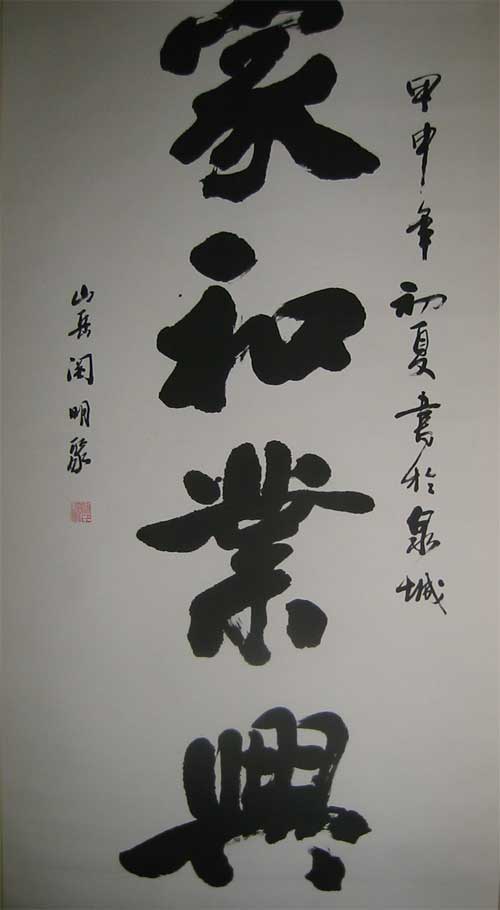 甲申年初夏書於泉城
家和業興
山岳明聚